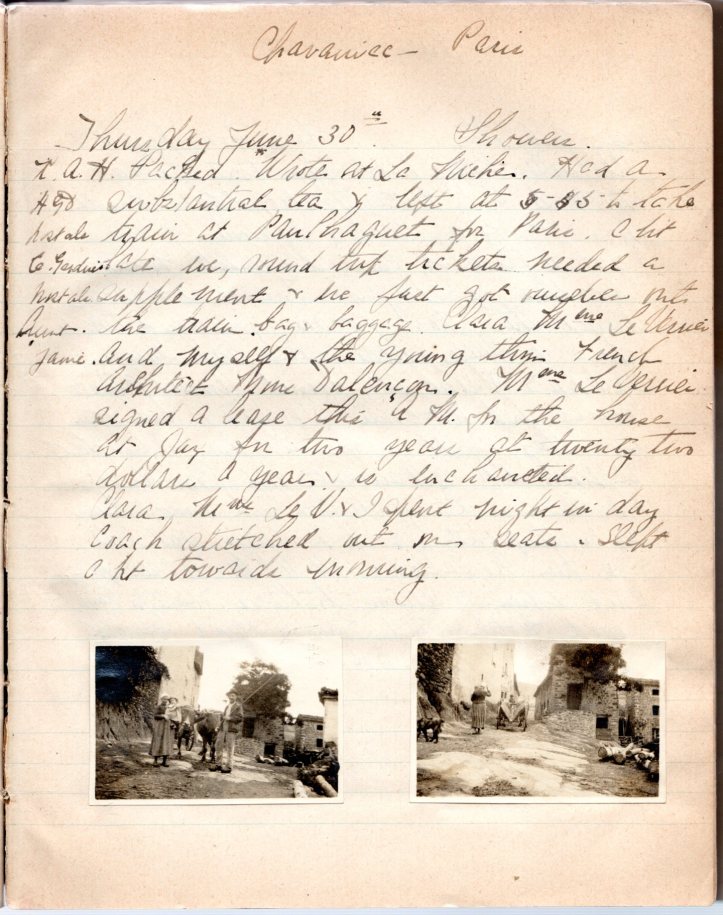 Chavaniac – Paris
Thursday June 30th. Showers.
K.A.H. Packed. Wrote at La Niche. Had a
substantial tea & left at 5-55 to take
postale train at Paulhaguet for Paris. a bit
late we, round trip tickets needed a
postale supplement & we just got number onto
Aunt. the train bag & baggage. Clara Mme Le Verrier
Jamie. And myself & the young thin French
Architect Mons Dalencon. Mme Le Verrier
signed a lease this A.M. for the house
at Jax for two years at twenty two
dollars a year & is enchanted.
Clara Mme Le V. & I spent night in day
coach stretched out on seats. Slept
a bit towards morning.